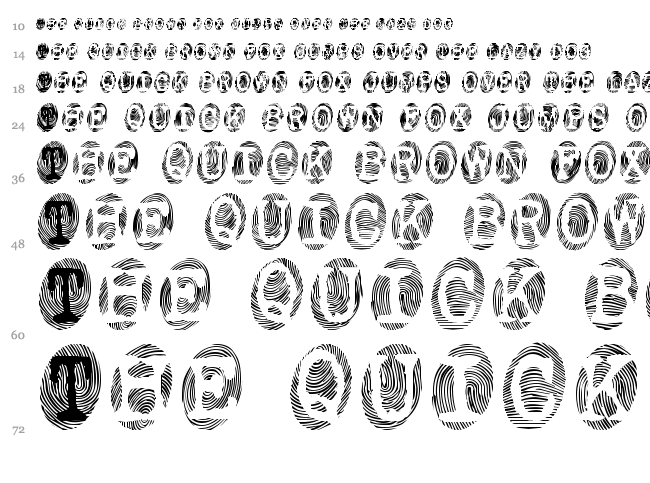 10 THE QUICK BROWN FOX JUMPS OVER THE LAZY DOG
14 THE QUICK BROWN FOX JUMPS OVER THE LAZY DOG
18 THE QUICK BROWN FOX JUMPS OVER THE LAZ
24 THE QUICK BROWN FOX JUMPS O
36 THE QUICK BROWN FOX
48 THE QUICK BROW
60 THE QUICK B
72 THE QUICK